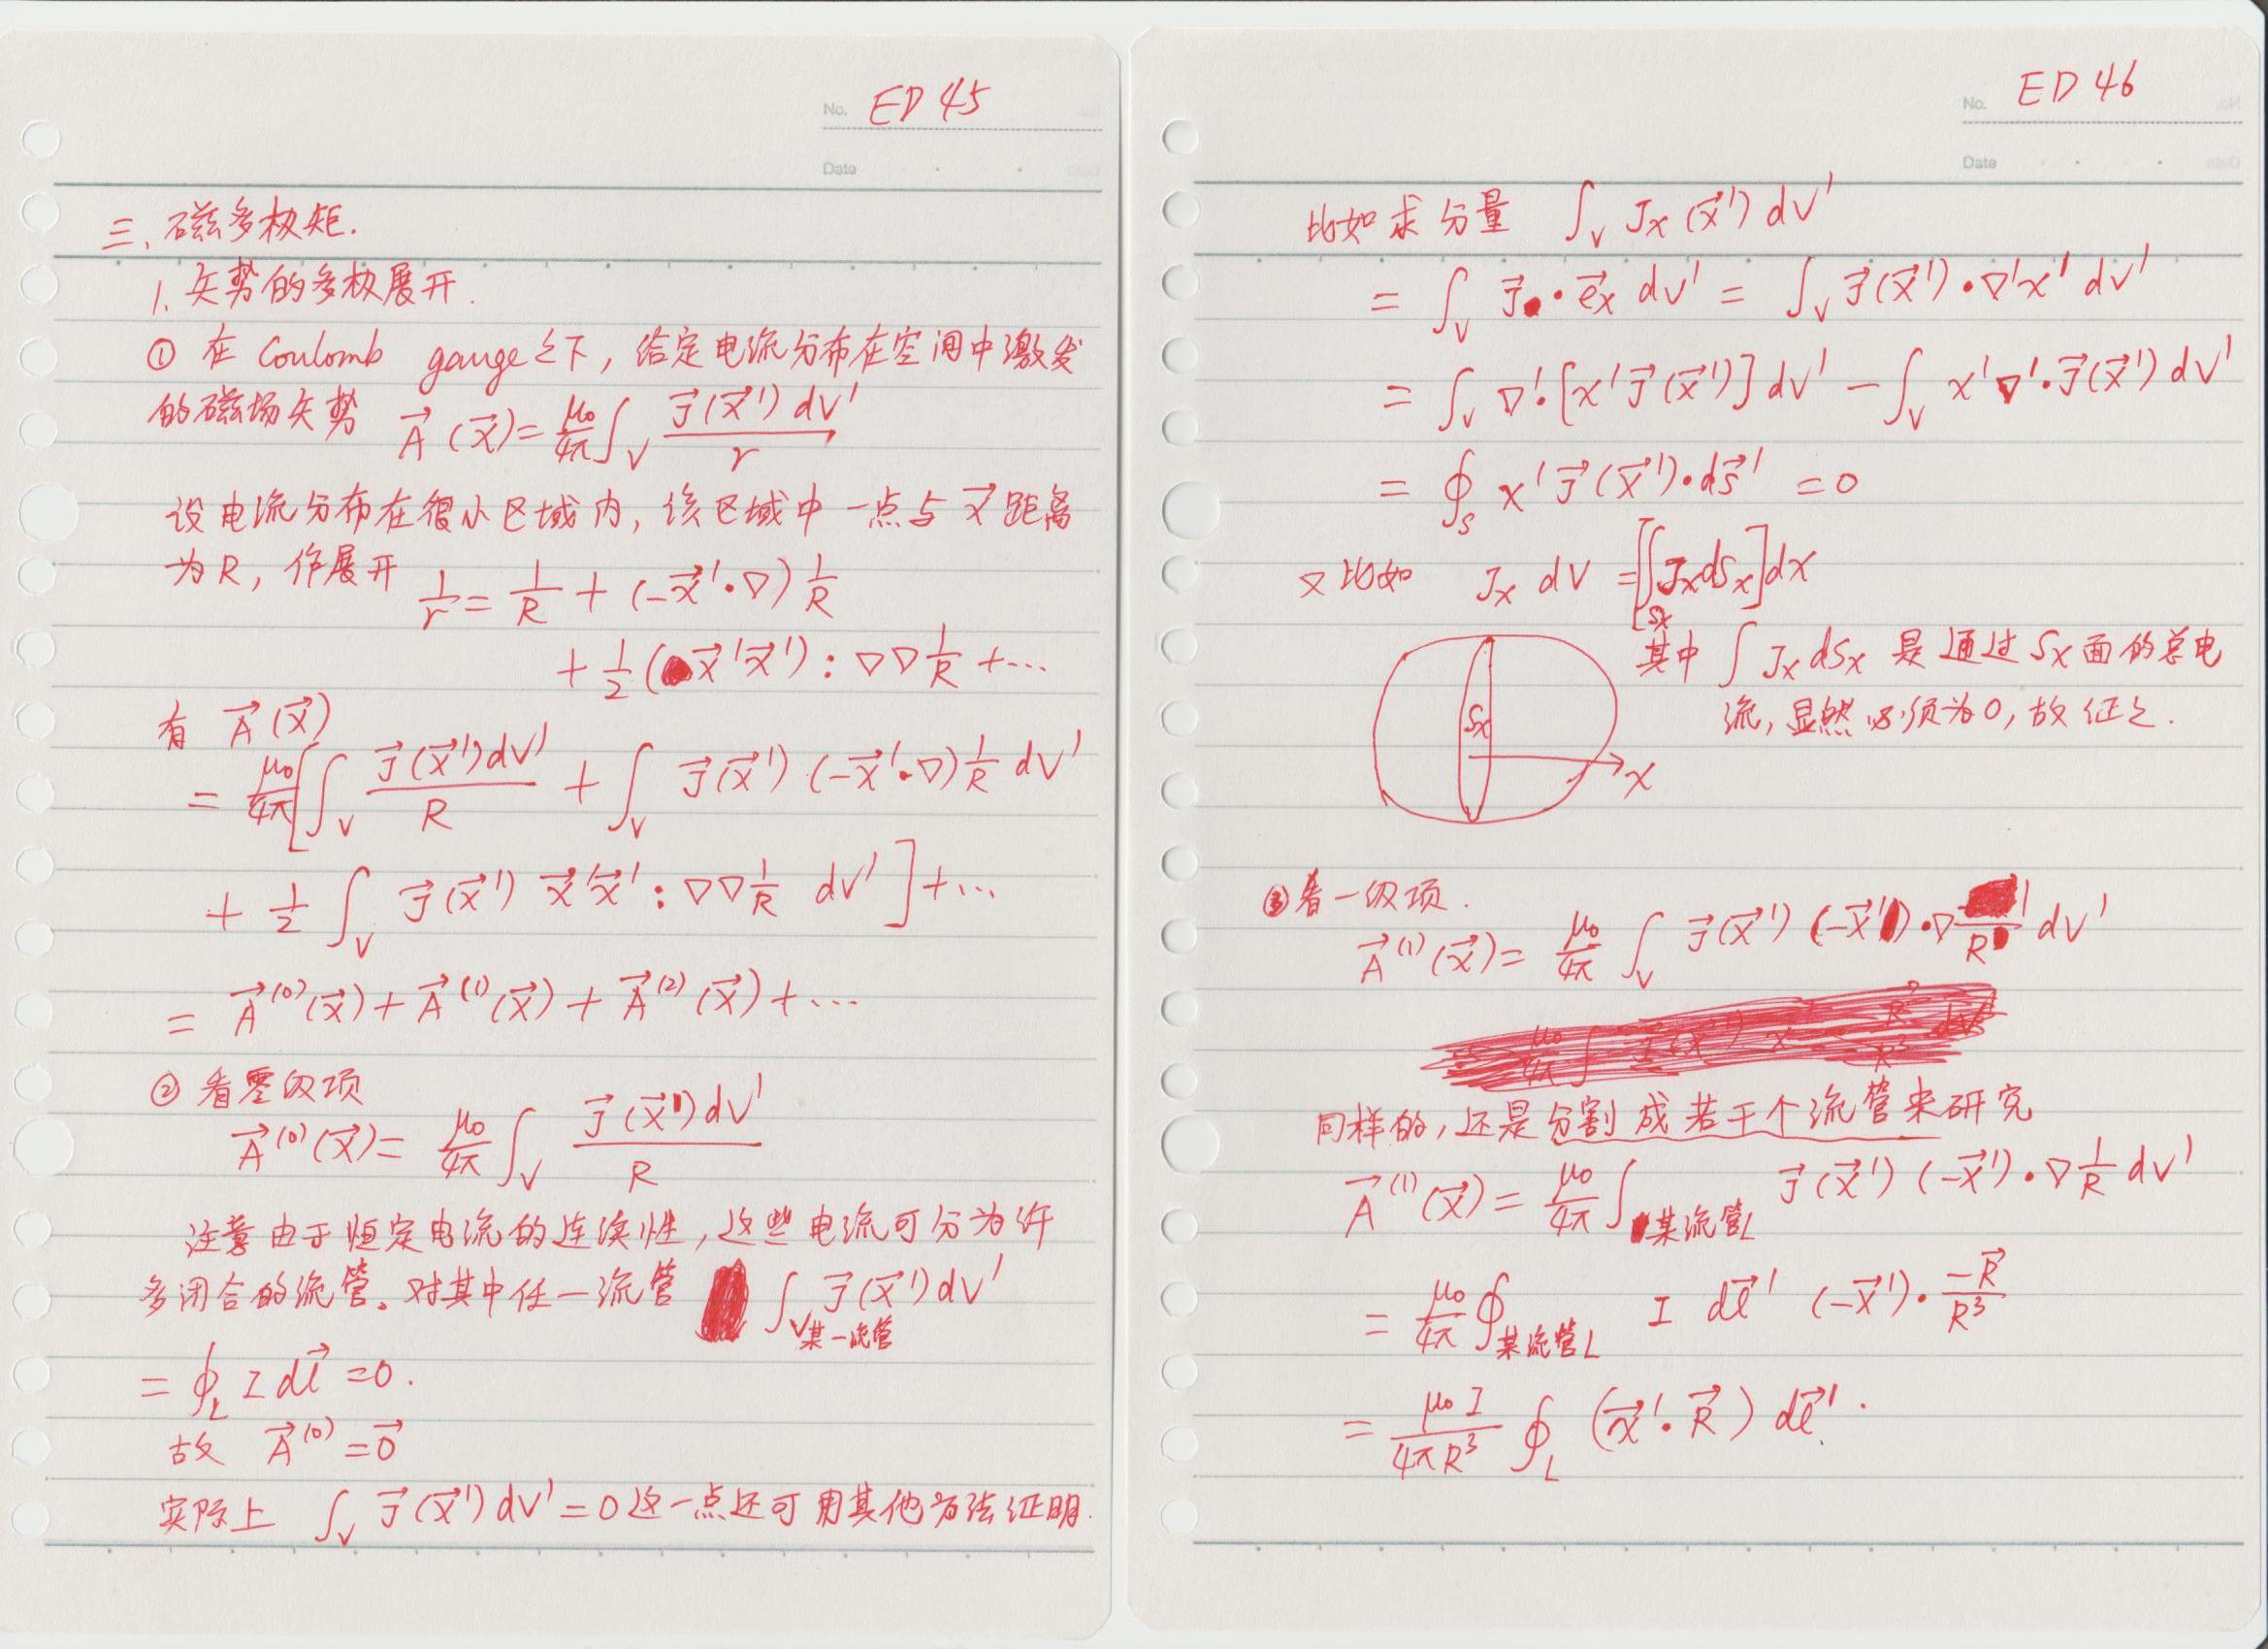 No. ED 45
Date
三、磁多极矩.
1. 矢势的多极展开.
① 在 Coulomb gauge之下, 给定电流分布在空间中激发
的磁场矢势 $\vec{A}(\vec{x})=\frac{\mu_0}{4\pi}\int_V \frac{\vec{J}(\vec{x}')dV'}{r}$
设电流分布在很小区域内, 该区域中一点与 $\vec{x}$ 距离
为R, 作展开 $\frac{1}{r}=\frac{1}{R}+(-\vec{x}'\cdot\nabla)\frac{1}{R}$
$+\frac{1}{2}(\vec{x}'\vec{x}'):\nabla\nabla\frac{1}{R}+\cdots$
有 $\vec{A}(\vec{x})$
$=\frac{\mu_0}{4\pi}[\int_V \frac{\vec{J}(\vec{x}')dV'}{R}+\int_V \vec{J}(\vec{x}')(-\vec{x}'\cdot\nabla)\frac{1}{R}dV'$
$+\frac{1}{2}\int_V \vec{J}(\vec{x}')\vec{x}'\vec{x}':\nabla\nabla\frac{1}{R}dV']+\cdots$
$=\vec{A}^{(0)}(\vec{x})+\vec{A}^{(1)}(\vec{x})+\vec{A}^{(2)}(\vec{x})+\cdots$
② 看零级项
$\vec{A}^{(0)}(\vec{x})=\frac{\mu_0}{4\pi}\int_V \frac{\vec{J}(\vec{x}')dV'}{R}$
注意由于恒定电流的连续性, 这些电流可分为许
多闭合的流管。对其中任一流管 $\int_{V某一流管}\vec{J}(\vec{x}')dV'$
$=\oint_L I d\vec{l}=0.$
故 $\vec{A}^{(0)}=\vec{0}$
实际上 $\int_V \vec{J}(\vec{x}')dV'=0$ 这一点还可用其他方法证明.
No. ED 46
Date
比如求分量 $\int_V J_x(\vec{x}')dV'$
$=\int_V \vec{J}\cdot\vec{e}_x dV'=\int_V \vec{J}(\vec{x}')\cdot\nabla'x'dV'$
$=\int_V \nabla'\cdot[x'\vec{J}(\vec{x}')]dV'-\int_V x'\nabla'\cdot\vec{J}(\vec{x}')dV'$
$=\oint_S x'\vec{J}(\vec{x}')\cdot d\vec{s}'=0$
又比如 $J_x dV=[\iint_{S_x}J_x dS_x]dx$
其中 $\int J_x dS_x$ 是通过 $S_x$ 面的总电
流, 显然必须为0, 故证之.
$S_x$
x
③看一级项.
$\vec{A}^{(1)}(\vec{x})=\frac{\mu_0}{4\pi}\int_V \vec{J}(\vec{x}')(-\vec{x}')\cdot\nabla\frac{1}{R}dV'$
同样的, 还是分割成若干个流管来研究
$\vec{A}^{(1)}(\vec{x})=\frac{\mu_0}{4\pi}\int_{某流管L}\vec{J}(\vec{x}')(-\vec{x}')\cdot\nabla\frac{1}{R}dV'$
$=\frac{\mu_0}{4\pi}\oint_{某流管L} I d\vec{l}'(-\vec{x}')\cdot\frac{-\vec{R}}{R^3}$
$=\frac{\mu_0 I}{4\pi R^3}\oint_L(\vec{x}'\cdot\vec{R})d\vec{l}'.$